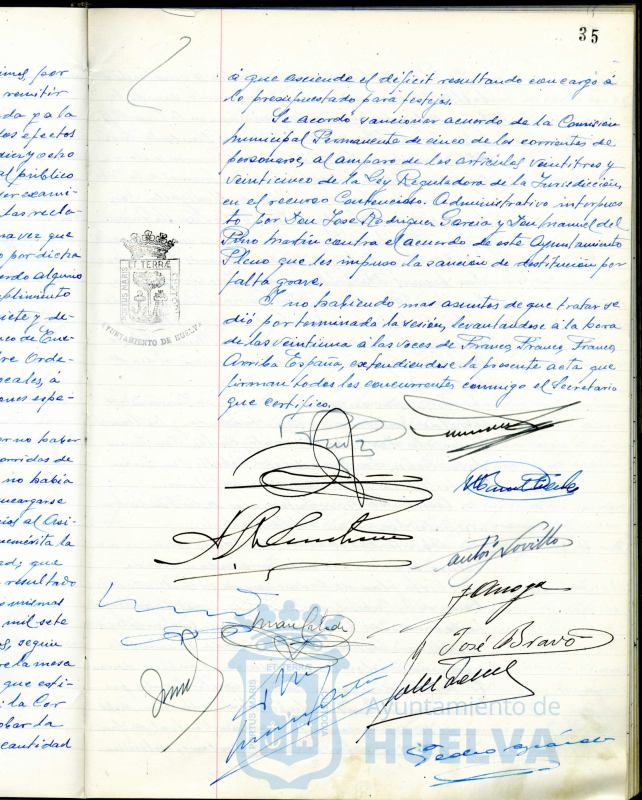 35
por
remitir
da pa la
los efectos
diez y ocho
al público
ser exami-
las recla-
na vez que
o por dicha
erdo alguno
plimiento
siete y de-
re Orde-
scales, á
ones espe-
or no haber
corridas de
no habia
encargarse
cial al Asi-
nemérita la
ed; que
resultado
o mismas
mil sete
s, segun
re la mesa
que esti-
i la Cor
obar la
cantidad
á que asciende el déficit resultando con cargo á
lo presupuestado para festejos.
Se acordó sancionar acuerdo de la Comisión
Municipal Permanente de cinco de los corrientes de
personarse, al amparo de los articulos veintitres y
veinticinco de la Ley Reguladora de la Jurisdicción,
en el recurso Contencioso-Administrativo interpues
to por Don José Rodriguez Garcia y Don Manuel del
Pino Martin contra el acuerdo de este Ayuntamiento
Pleno que les impuso la sanción de destitución por
falta grave.
Y no habiendo mas asuntos de que tratar se
dió por terminada la sesión, levantandose á la hora
de las veintiuna á las voces de Franco, Franco, Franco,
Arriba España, extendiendose la presente acta que
firman todos los concurrentes conmigo el Secretario
que certifico.
PORTUS MARIS ET TERRÆ CUSTODIA
AYUNTAMIENTO DE HUELVA
José Bravo
Ayuntamiento de
HUELVA